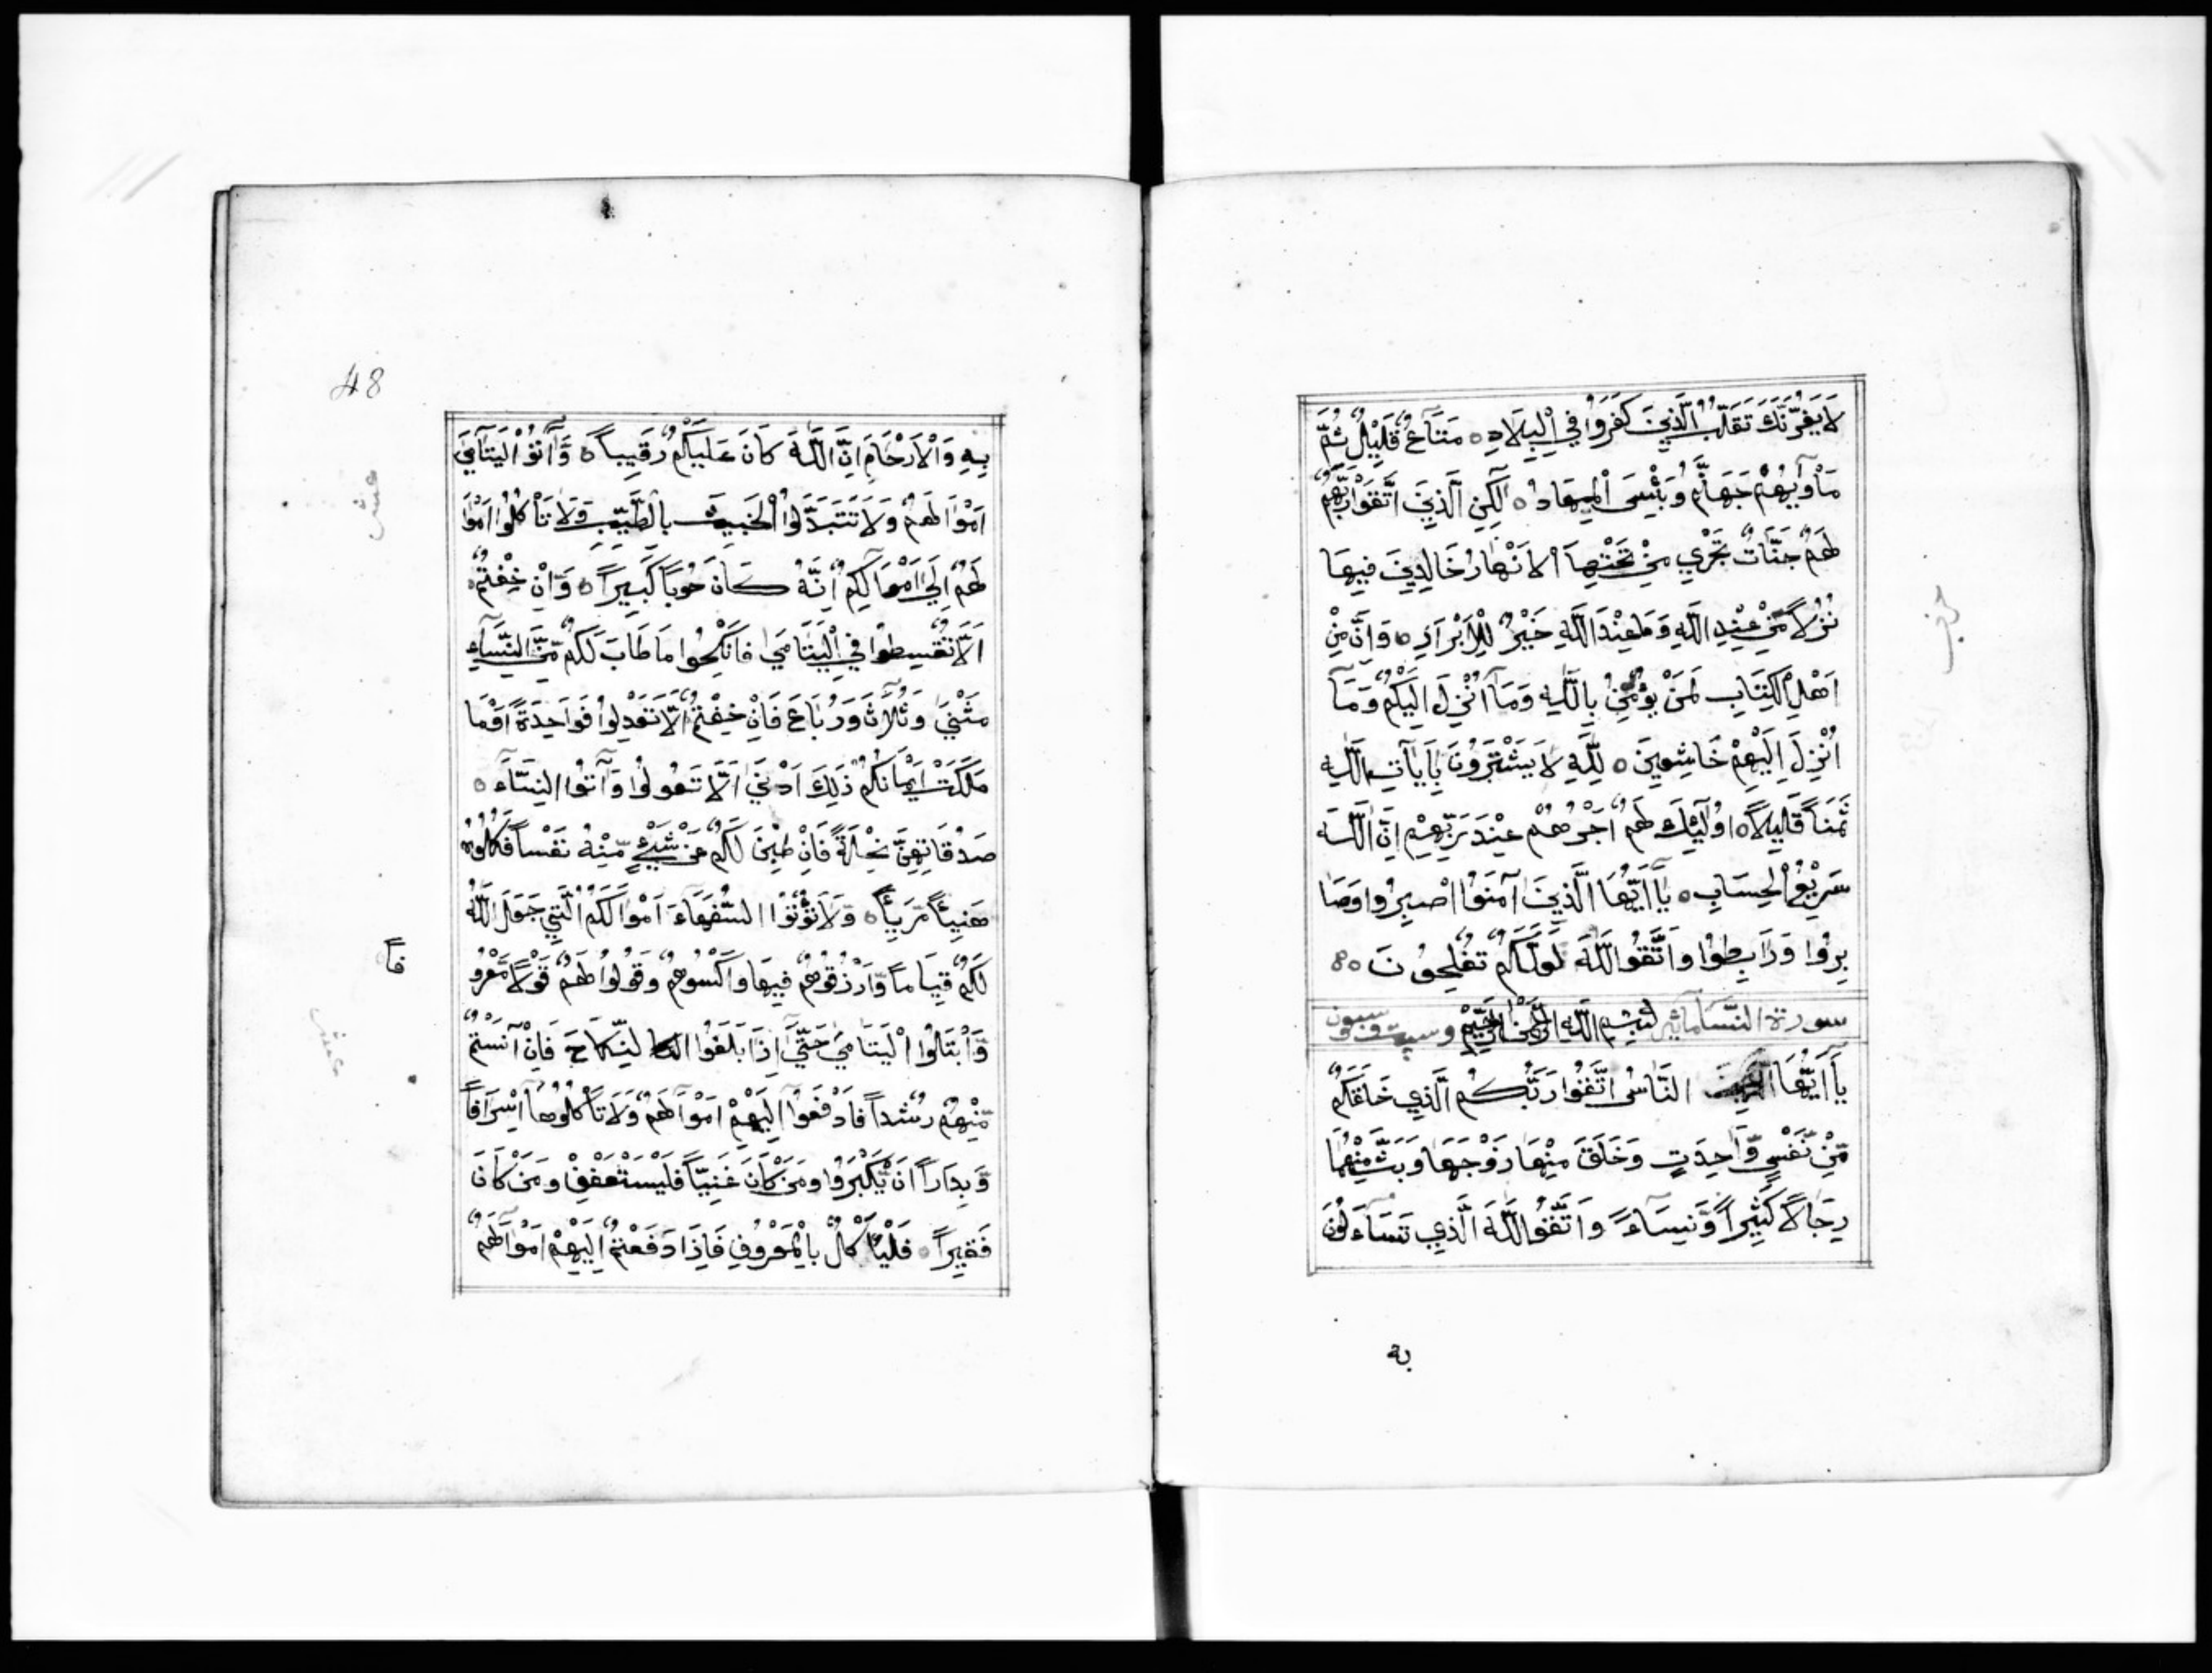 لَا يَغُرَّنَّكَ تَقَلُّبُ الَّذِينَ كَفَرُوا فِي الْبِلَادِ ه مَتَاعٌ قَلِيلٌ ثُمَّ
مَأْوٰيهُمْ جَهَنَّمُ وَبِئْسَ الْمِهَادُ ه لٰكِنِ الَّذِينَ اتَّقَوْا رَبَّهُمْ
لَهُمْ جَنَّاتٌ تَجْرِي مِنْ تَحْتِهَا الْاَنْهَارُ خَالِدِينَ فِيهَا
نُزُلًا مِّنْ عِنْدِ اللّٰهِ وَمَا عِنْدَ اللّٰهِ خَيْرٌ لِلْاَبْرَارِ ه وَاِنَّ مِنْ
اَهْلِ الْكِتَابِ لَمَنْ يُؤْمِنُ بِاللّٰهِ وَمَآ اُنْزِلَ اِلَيْكُمْ وَمَآ
اُنْزِلَ اِلَيْهِمْ خَاشِعِينَ ه لِلّٰهِ لَا يَشْتَرُونَ بِاٰيَاتِ اللّٰهِ
ثَمَنًا قَلِيلًا ه اُولٰٓئِكَ لَهُمْ اَجْرُهُمْ عِنْدَ رَبِّهِمْ اِنَّ اللّٰهَ
سَرِيعُ الْحِسَابِ ه يَآ اَيُّهَا الَّذِينَ آمَنُوا اصْبِرُوا وَصَا
بِرُوا وَرَابِطُوا وَاتَّقُوا اللّٰهَ لَعَلَّكُمْ تُفْلِحُونَ ه
سورة النساء بِسْمِ اللّٰهِ الرَّحْمٰنِ الرَّحِيمِ وست وسبعون
يَآ اَيُّهَا النَّاسُ اتَّقُوا رَبَّكُمُ الَّذِي خَلَقَكُمْ
مِّنْ نَّفْسٍ وَّاحِدَتٍ وَخَلَقَ مِنْهَا زَوْجَهَا وَبَثَّ مِنْهُمَا
رِجَالًا كَثِيرًا وَّنِسَاءً وَاتَّقُوا اللّٰهَ الَّذِي تَسَاءَلُونَ
به
حزب
48
بِهِ وَالْاَرْحَامَ اِنَّ اللّٰهَ كَانَ عَلَيْكُمْ رَقِيبًا ه وَآتُوا الْيَتَامَى
اَمْوَالَهُمْ وَلَا تَتَبَدَّلُوا الْخَبِيثَ بِالطَّيِّبِ وَلَا تَأْكُلُوا اَمْوَا
لَهُمْ اِلَى اَمْوَالِكُمْ اِنَّهُ كَانَ حُوبًا كَبِيرًا ه وَاِنْ خِفْتُمْ
اَلَّا تُقْسِطُوا فِي الْيَتَامَى فَانْكِحُوا مَا طَابَ لَكُمْ مِّنَ النِّسَآءِ
مَثْنَى وَثُلَاثَ وَرُبَاعَ فَاِنْ خِفْتُمْ اَلَّا تَعْدِلُوا فَوَاحِدَةً اَوْ مَا
مَلَكَتْ اَيْمَانُكُمْ ذَلِكَ اَدْنَى اَلَّا تَعُولُوا وَآتُوا النِّسَآءَ ه
صَدُقَاتِهِنَّ نِحْلَةً فَاِنْ طِبْنَ لَكُمْ عَنْ شَيْءٍ مِّنْهُ نَفْسًا فَكُلُوهُ
هَنِيئًا مَّرِيئًا ه وَلَا تُؤْتُوا السُّفَهَآءَ اَمْوَالَكُمُ الَّتِي جَعَلَ اللّٰهُ
لَكُمْ قِيَامًا وَّارْزُقُوهُمْ فِيهَا وَاكْسُوهُمْ وَقُولُوا لَهُمْ قَوْلًا مَّعْرُو
فًا
وَابْتَلُوا الْيَتَامَى حَتّٰى اِذَا بَلَغُوا النِّكَاحَ فَاِنْ آنَسْتُمْ
مِّنْهُمْ رُشْدًا فَادْفَعُوا اِلَيْهِمْ اَمْوَالَهُمْ وَلَا تَأْكُلُوهَا اِسْرَافًا
وَّبِدَارًا اَنْ يَّكْبَرُوا وَمَنْ كَانَ غَنِيًّا فَلْيَسْتَعْفِفْ وَمَنْ كَانَ
فَقِيرًا ه فَلْيَأْكُلْ بِالْمَعْرُوفِ فَاِذَا دَفَعْتُمْ اِلَيْهِمْ اَمْوَالَهُمْ